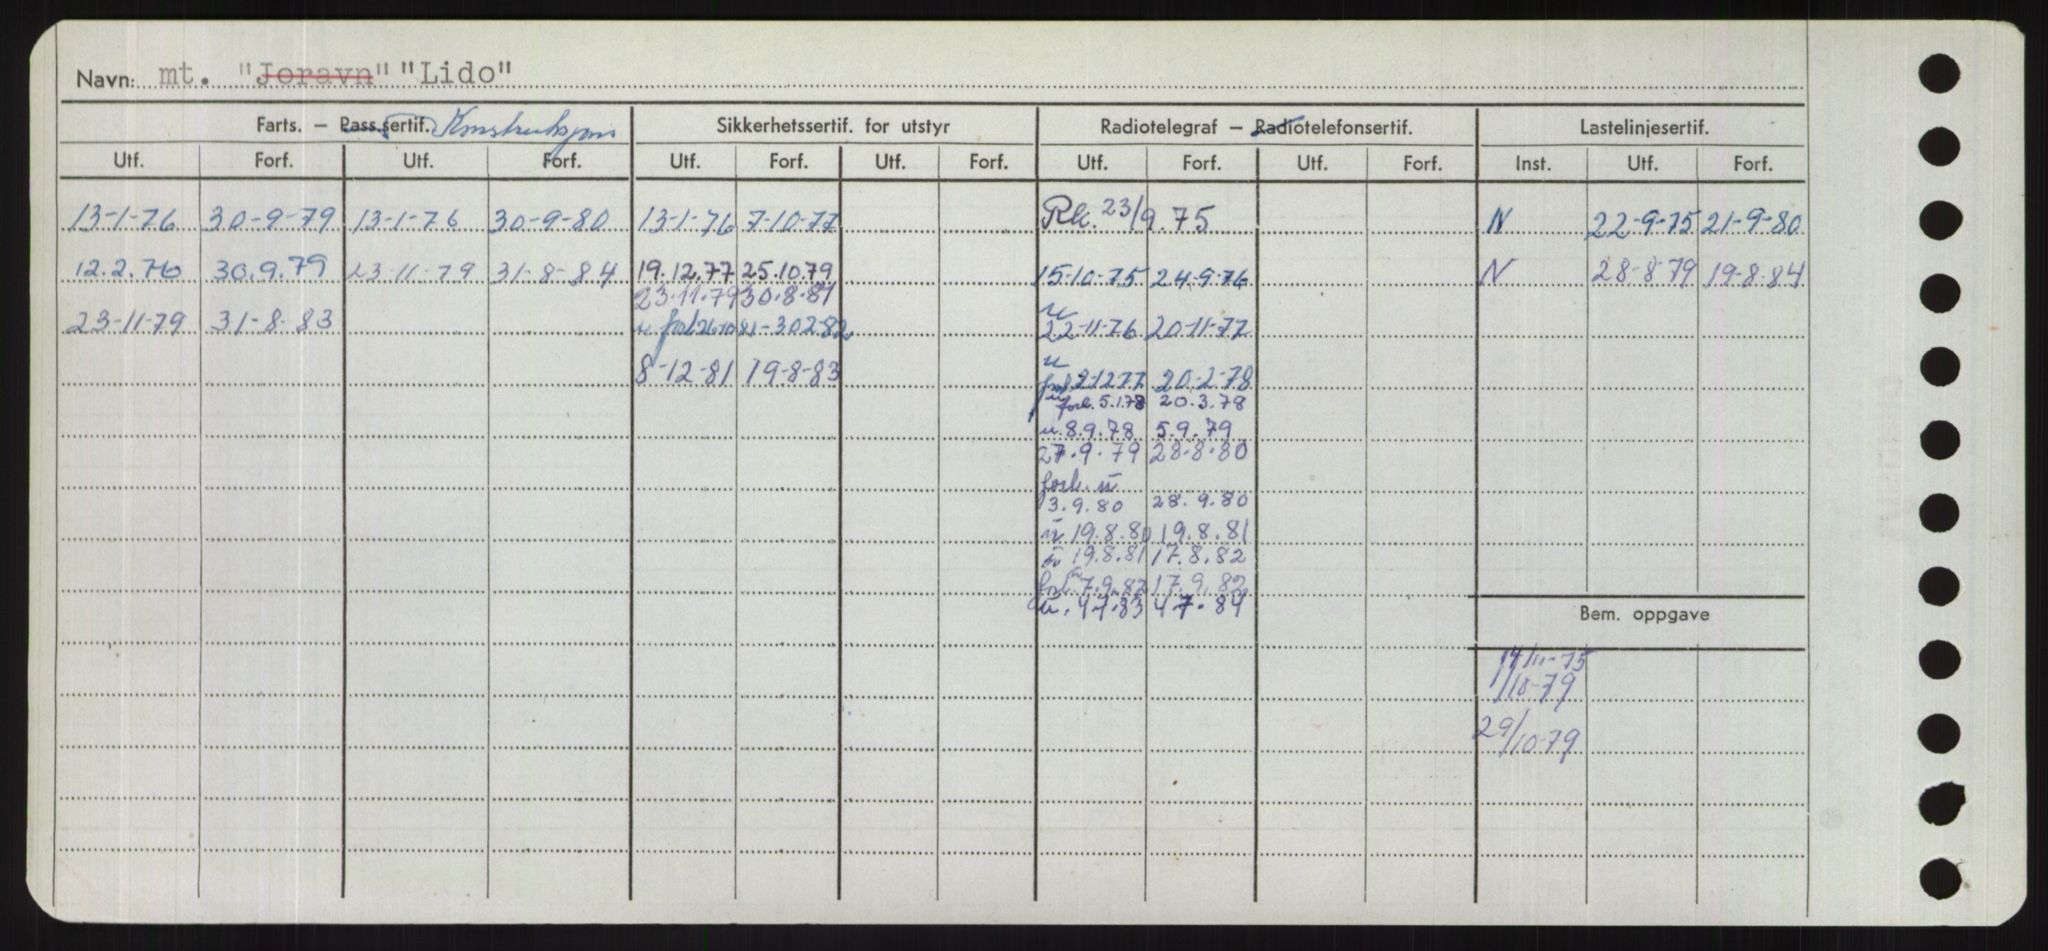 Navn: mt. "Joravn" "Lido"
Farts. – Pass.sertif. Konstruksjons Sikkerhetssertif. for utstyr Radiotelegraf – Radiotelefonsertif. Lastelinjesertif.
Utf. Forf. Utf. Forf. Utf. Forf. Utf. Forf. Utf. Forf. Utf. Forf. Inst. Utf. Forf.
13-1-76 30-9-79 13-1-76 30-9-80 13-1-76 7-10-77 Rk. 23/9.75 N 22-9-75 21-9-80
12.2.76 30.9.79 23-11-79 31-8-84 19.12.77 25.10.79 15-10-75 24-9-76 N 28-8-79 19-8-84
23.11.79 30.8.81
u
23-11-79 31-8-83 u forl 26-10 81 - 30282 22-11-76 20-11-77
u
8-12-81 19-8-83 forl 2-12-77 20-2-78
u forl. 5.1.78 20.3.78
u. 8.9.78 5.9.79
27.9.79 28.8.80
forl. u
3.9.80 28.9.80
u 19.8.80 19.8.81
u 19.8.81 17.8.82
forl. u 7.9.82 17.9.82
u. 4.7.83 4.7.84
Bem. oppgave
14/11-75
1/10-79
29/10-79